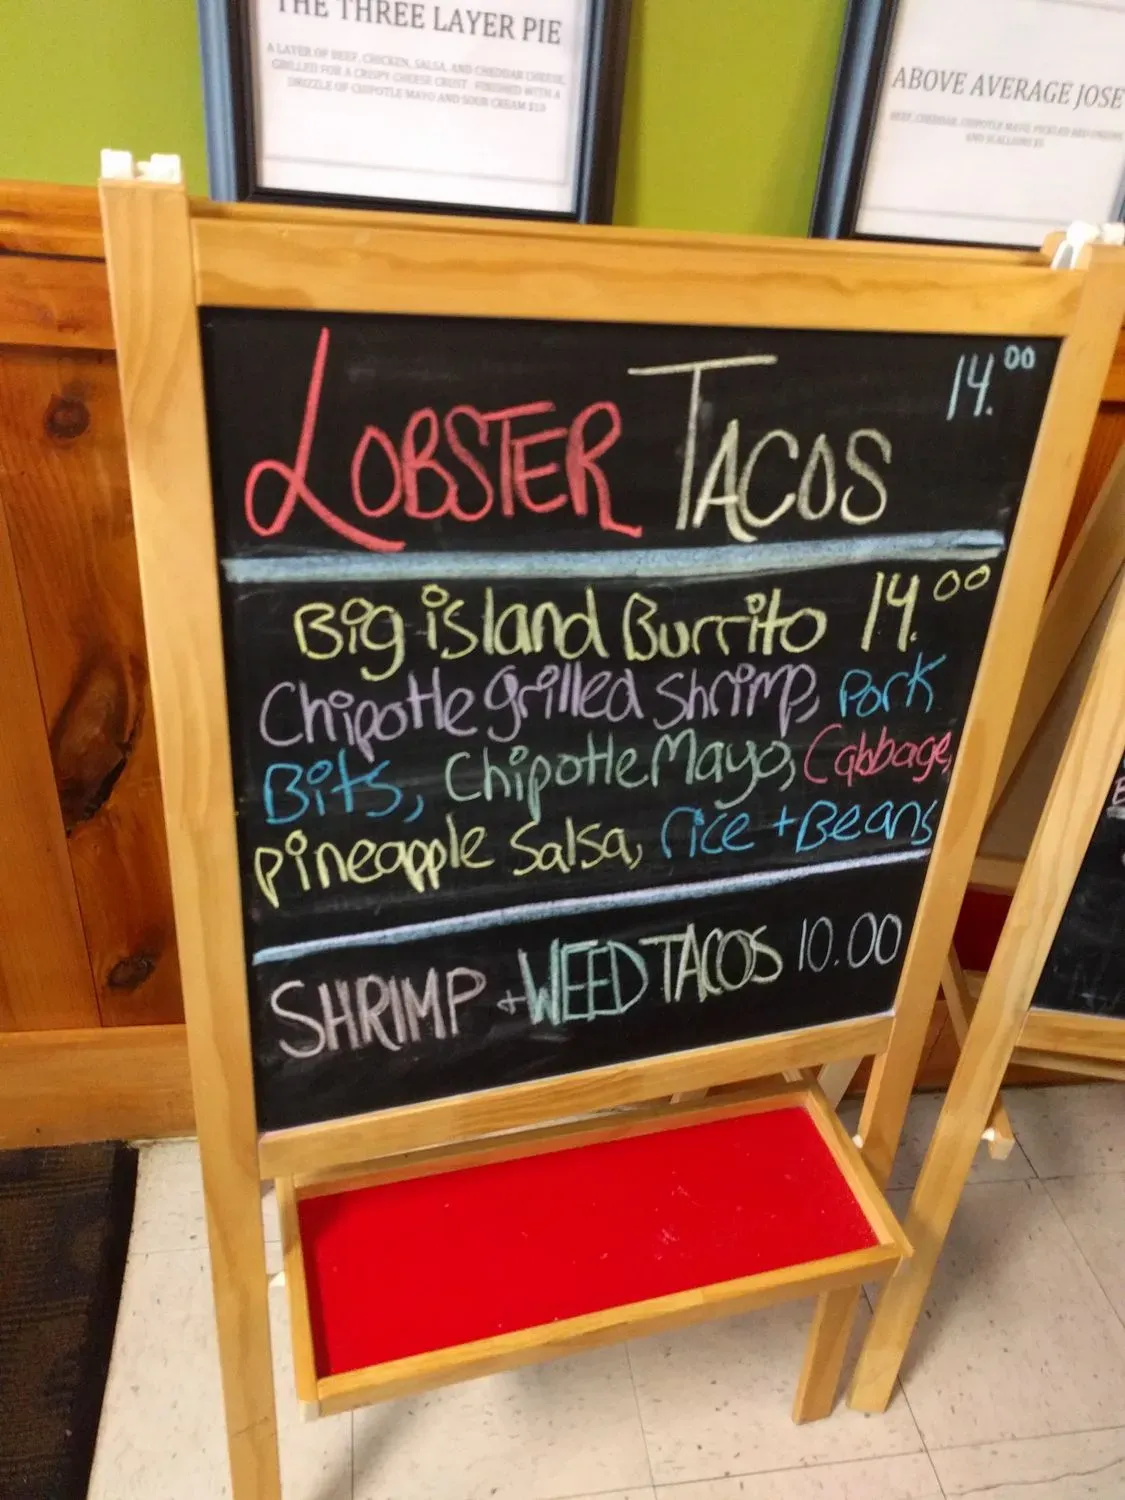 THE THREE LAYER PIE
A LAYER OF BEEF, CHICKEN, SALSA, AND CHEDDAR CHEESE,
GRILLED FOR A CRISPY CHEESE CRUST. FINISHED WITH A
DRIZZLE OF CHIPOTLE MAYO AND SOUR CREAM $10
ABOVE AVERAGE JOSE
BEEF, CHEDDAR, CHIPOTLE MAYO, PICKLED RED ONIONS,
AND SCALLIONS
LOBSTER TACOS 14.00
Big island Burrito 14.00
Chipotle grilled shrimp, Pork
Bits, Chipotle Mayo, Cabbage,
pineapple salsa, rice + Beans
SHRIMP + WEED TACOS 10.00